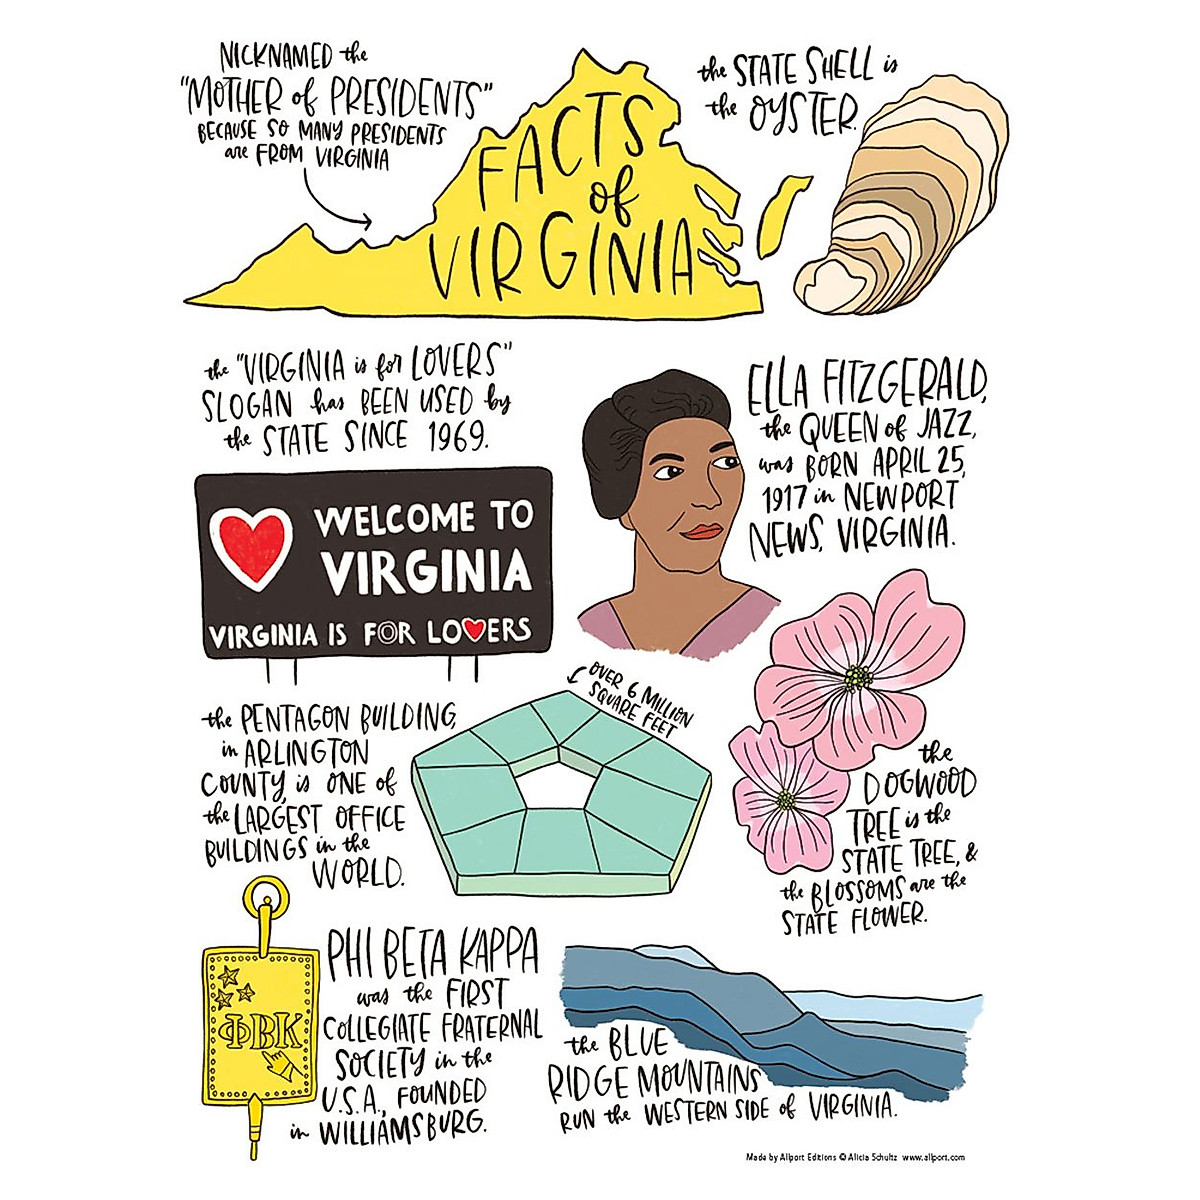 NICKNAMED the
"MOTHER of PRESIDENTS"
BECAUSE SO MANY PRESIDENTS
are FROM VIRGINIA
FACTS
of
VIRGINIA
the STATE SHELL is
the OYSTER.
the "VIRGINIA is for LOVERS"
SLOGAN has BEEN USED by
the STATE SINCE 1969.
WELCOME TO
VIRGINIA
VIRGINIA IS FOR LOVERS
ELLA FITZGERALD,
the QUEEN of JAZZ,
was BORN APRIL 25,
1917 in NEWPORT
NEWS, VIRGINIA.
the PENTAGON BUILDING,
in ARLINGTON
COUNTY, is ONE of
the LARGEST OFFICE
BUILDINGS in the
WORLD.
OVER 6 MILLION
SQUARE FEET
the
DOGWOOD
TREE is the
STATE TREE, &
the BLOSSOMS are the
STATE FLOWER.
ΦBK
PHI BETA KAPPA
was the FIRST
COLLEGIATE FRATERNAL
SOCIETY in the
U.S.A., FOUNDED
in WILLIAMSBURG.
the BLUE
RIDGE MOUNTAINS
RUN the WESTERN SIDE of VIRGINIA.
Made by Allport Editions © Alicia Schultz www.allport.com